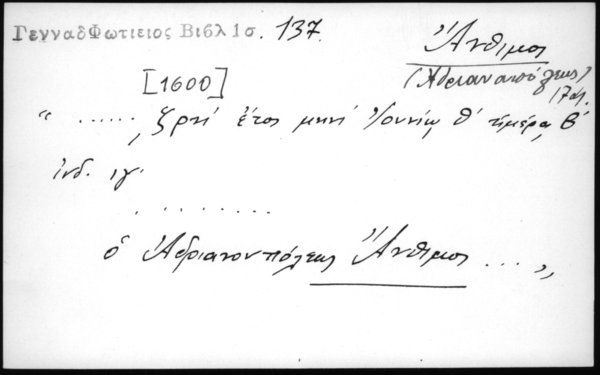 ΓενναδΦωτιειος Βιβλ 1σ. 137.
Ἄνθιμος
(Ἀδριανουπόλεως)
17 αἰ.
[1600]
" ......, ζρη' ἔτος μηνί Ἰουνίῳ θ' ἡμέρᾳ β'
ἰνδ. ιγ'
. . . . . . . .
ὁ Ἀδριανουπόλεως Ἄνθιμος ... „